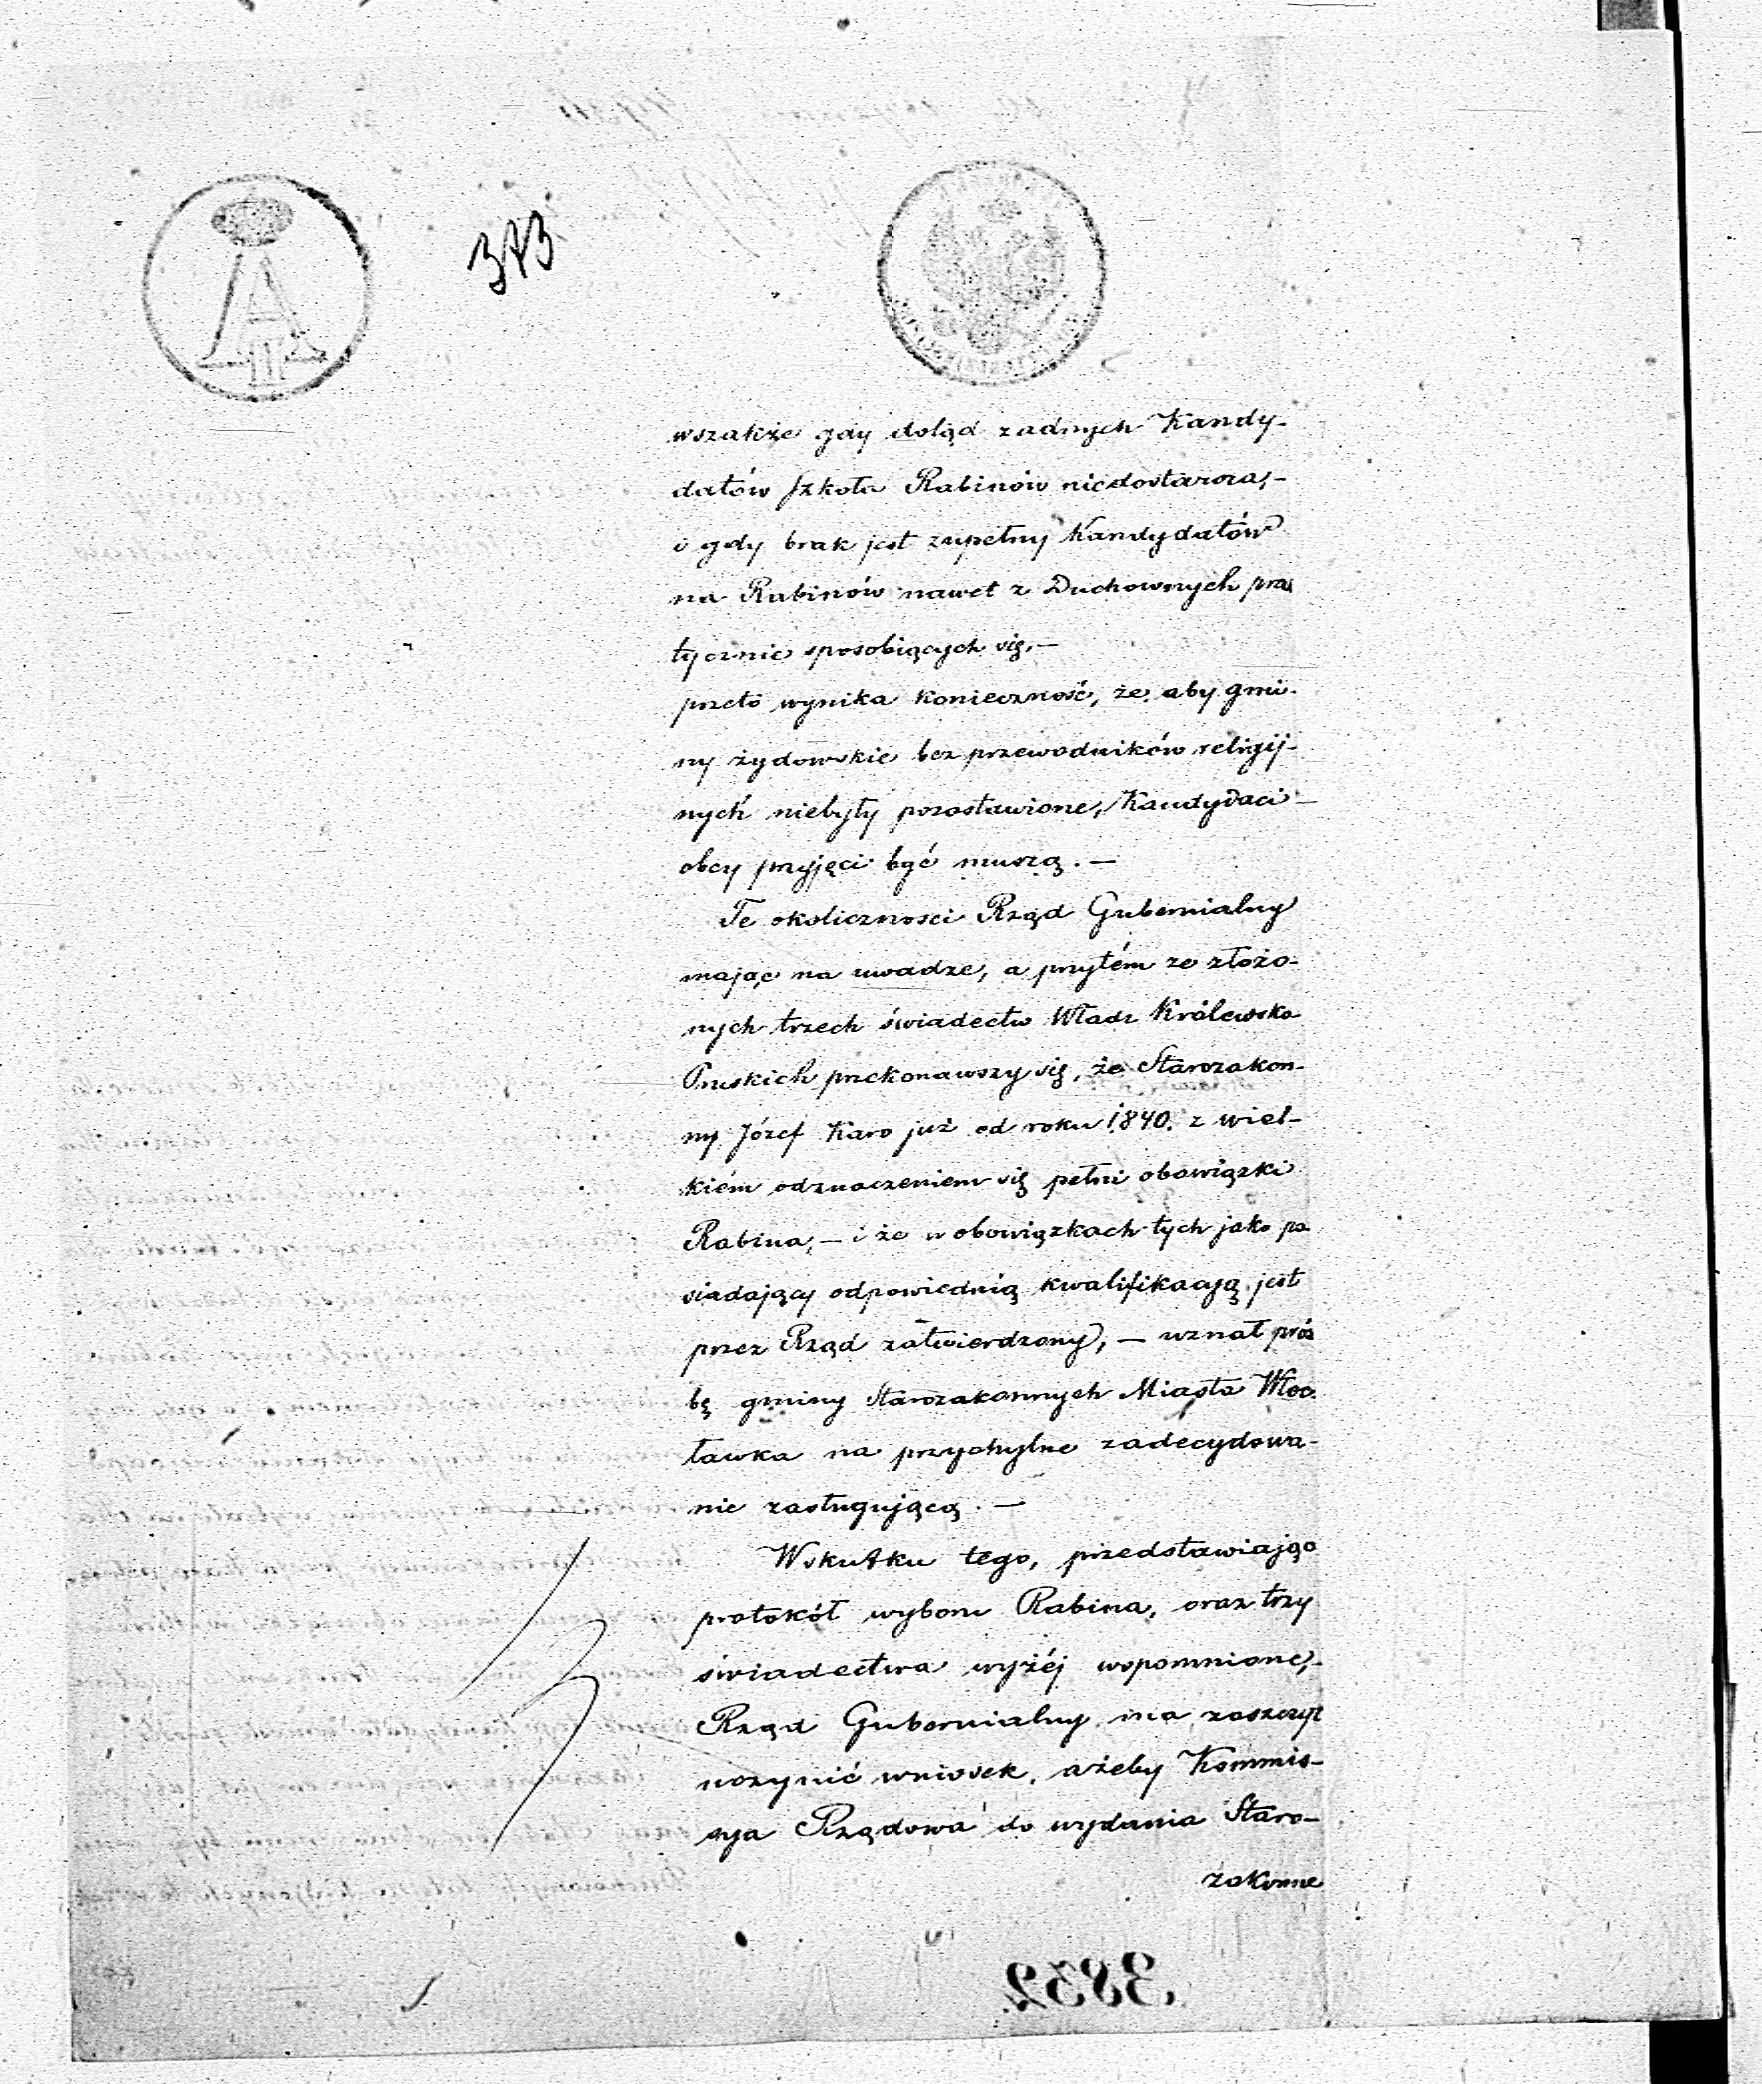 373
wszakże gdy dotąd żadnych Kandy-
datów Szkoła Rabinów niedostarcza,-
i gdy brak jest zupełny Kandydatów
na Rabinów nawet z Duchownych prak
tycznie sposobiących się,—
przeto wynika konieczność, że aby gmi-
ny żydowskie bez przewodników religij-
nych niebyły pozostawione, Kandydaci-
obcy przyjęci być muszą.—
Te okoliczności Rząd Gubernialny
mając na uwadze, a przytém ze złożo-
nych trzech świadectw Władz Królewsko
Pruskich przekonawszy się, że Starozakon-
ny Józef Karo już od roku 1840. z wiel-
kiém odznaczeniem się pełni obowiązki
Rabina,— i że w obowiązkach tych jako po
siadający odpowiednią kwalifikacyą jest
przez Rząd zatwierdzony,— uznał proś
bę gminy Starozakonnych Miasta Włoc-
ławka na przychylne zadecydowa-
nie zasługującą.—
Wskutku tego, przedstawiając
protokół wyboru Rabina, oraz trzy
świadectwa wyżéj wspomnione,-
Rząd Gubernialny ma zaszczyt
uczynić wniosek, ażeby Kommis-
sya Rządowa do wydania Staro-
zakonne
3832